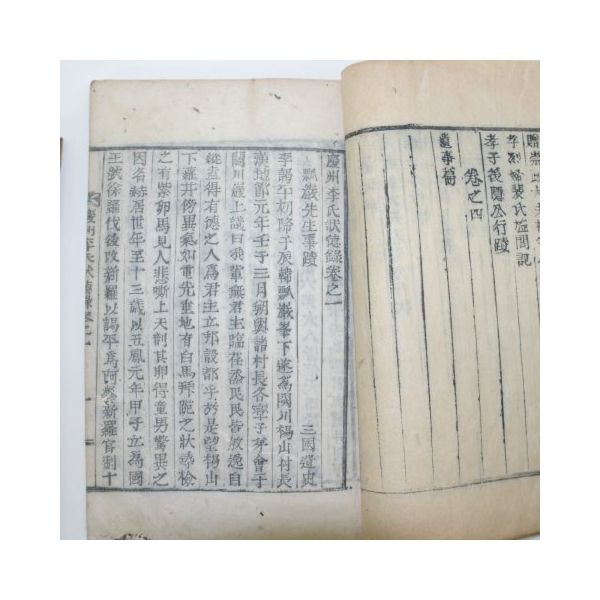 孝子後隱公行蹟
卷之四
遺事篇
慶州李氏狀德錄卷之一
瓢巖先生事蹟
三國遺史
李謁平初降于辰韓瓢巖峯下遂爲閼川楊山村長
漢地部元年壬子三月朔與諸村長各率子弟會于
閼川岸上議曰我輩無君主臨莅蒸民民皆放逸自
從盍得有德之人爲君主立邦設都乎於是望楊山
下蘿井傍異氣如電光垂地有白馬拜跪之狀尋檢
之有紫卵馬見人悲嘶上天剖其卵得童男驚異之
因名赫居世年至十三歲以五鳳元年甲子立爲國
王號徐羅伐後改新羅以謁平爲阿飡新羅官制十